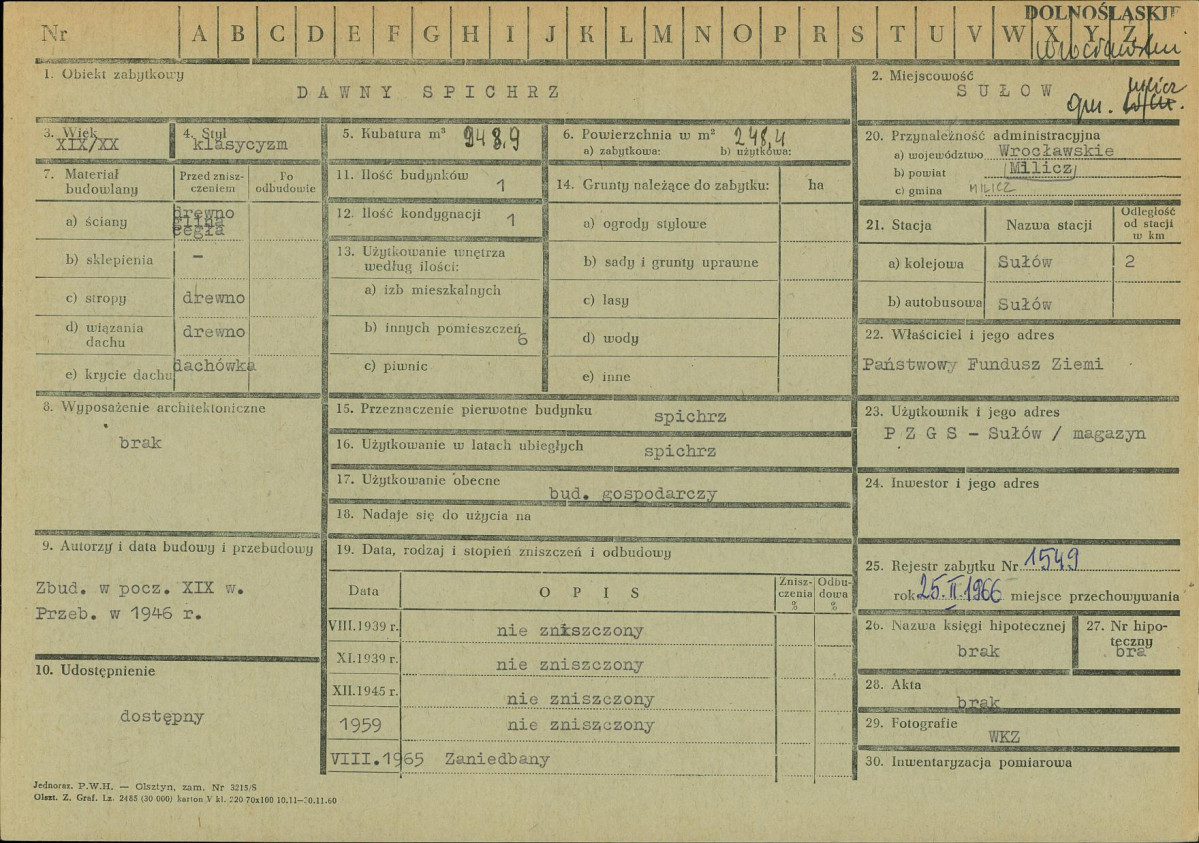 Nr A B C D E F G H I J K L M N O P R S T U V W X Y Z
DOLNOŚLĄSKIE
1. Obiekt zabytkowy
DAWNY SPICHRZ
2. Miejscowość
SUŁÓW
gm. Milicz
3. Wiek
XIX/XX
4. Styl
klasycyzm
5. Kubatura m³ 948,9
6. Powierzchnia w m² 248,4
a) zabytkowa: b) użytkowa:
7. Materiał budowlany
Przed zniszczeniem
Po odbudowie
a) ściany
drewno
glina
cegła
b) sklepienia –
c) stropy drewno
d) wiązania dachu drewno
e) krycie dachu dachówka
8. Wyposażenie architektoniczne
brak
9. Autorzy i data budowy i przebudowy
Zbud. w pocz. XIX w.
Przeb. w 1946 r.
10. Udostępnienie
dostępny
11. Ilość budynków 1
12. Ilość kondygnacji 1
13. Użytkowanie wnętrza
według ilości:
a) izb mieszkalnych
b) innych pomieszczeń 6
c) piwnic
14. Grunty należące do zabytku: ha
a) ogrody stylowe
b) sady i grunty uprawne
c) lasy
d) wody
e) inne
15. Przeznaczenie pierwotne budynku spichrz
16. Użytkowanie w latach ubiegłych spichrz
17. Użytkowanie obecne bud. gospodarczy
18. Nadaje się do użycia na
19. Data, rodzaj i stopień zniszczeń i odbudowy
Data OPIS Zniszczenia % Odbudowa %
VIII.1939 r. nie zniszczony
XI.1939 r. nie zniszczony
XII.1945 r. nie zniszczony
1959 nie zniszczony
VIII.1965 Zaniedbany
20. Przynależność administracyjna
a) województwo Wrocławskie
b) powiat Milicz
c) gmina MILICZ
21. Stacja Nazwa stacji Odległość od stacji w km
a) kolejowa Sułów 2
b) autobusowa Sułów
22. Właściciel i jego adres
Państwowy Fundusz Ziemi
23. Użytkownik i jego adres
P Z G S – Sułów / magazyn
24. Inwestor i jego adres
25. Rejestr zabytku Nr 1549
rok 25.II.1966 miejsce przechowywania
26. Nazwa księgi hipotecznej
brak
27. Nr hipoteczny
bra
28. Akta
brak
29. Fotografie
WKZ
30. Inwentaryzacja pomiarowa
Jednoraz. P.W.H. — Olsztyn, zam. Nr 3215/S
Olszt. Z. Graf. Lz. 2485 (30 000) karton V kl. 220 70x100 10.11—30.11.60